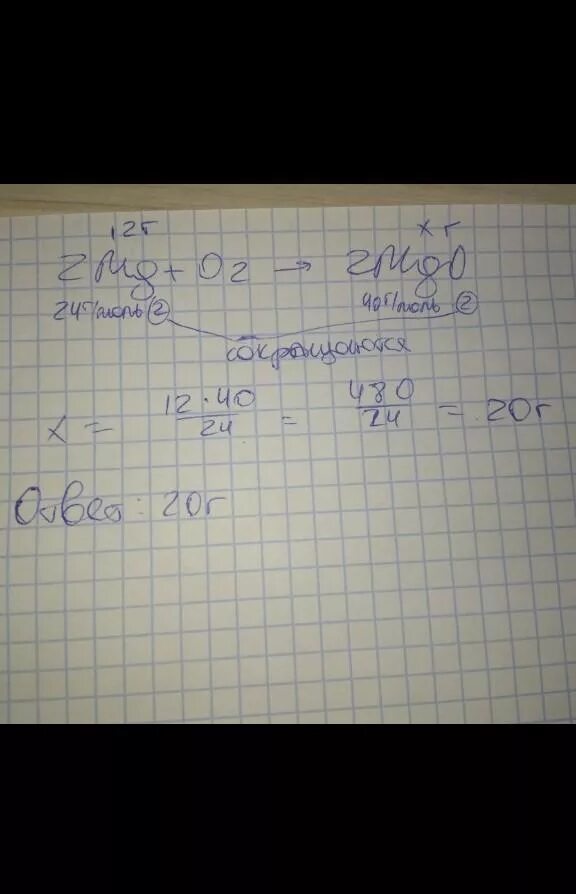 12г x г
2Mg + O2 → 2MgO
24г/моль (2) 40г/моль (2)
сокращаются
x = 12·40/24 = 480/24 = 20г
Ответ: 20г